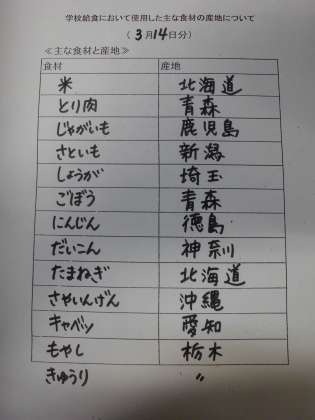 学校給食において使用した主な食材の産地について
(3月14日分)
≪主な食材と産地≫
食材 産地
米 北海道
とり肉 青森
じゃがいも 鹿児島
さといも 新潟
しょうが 埼玉
ごぼう 青森
にんじん 徳島
だいこん 神奈川
たまねぎ 北海道
さやいんげん 沖縄
キャベツ 愛知
もやし 栃木
きゅうり 〃